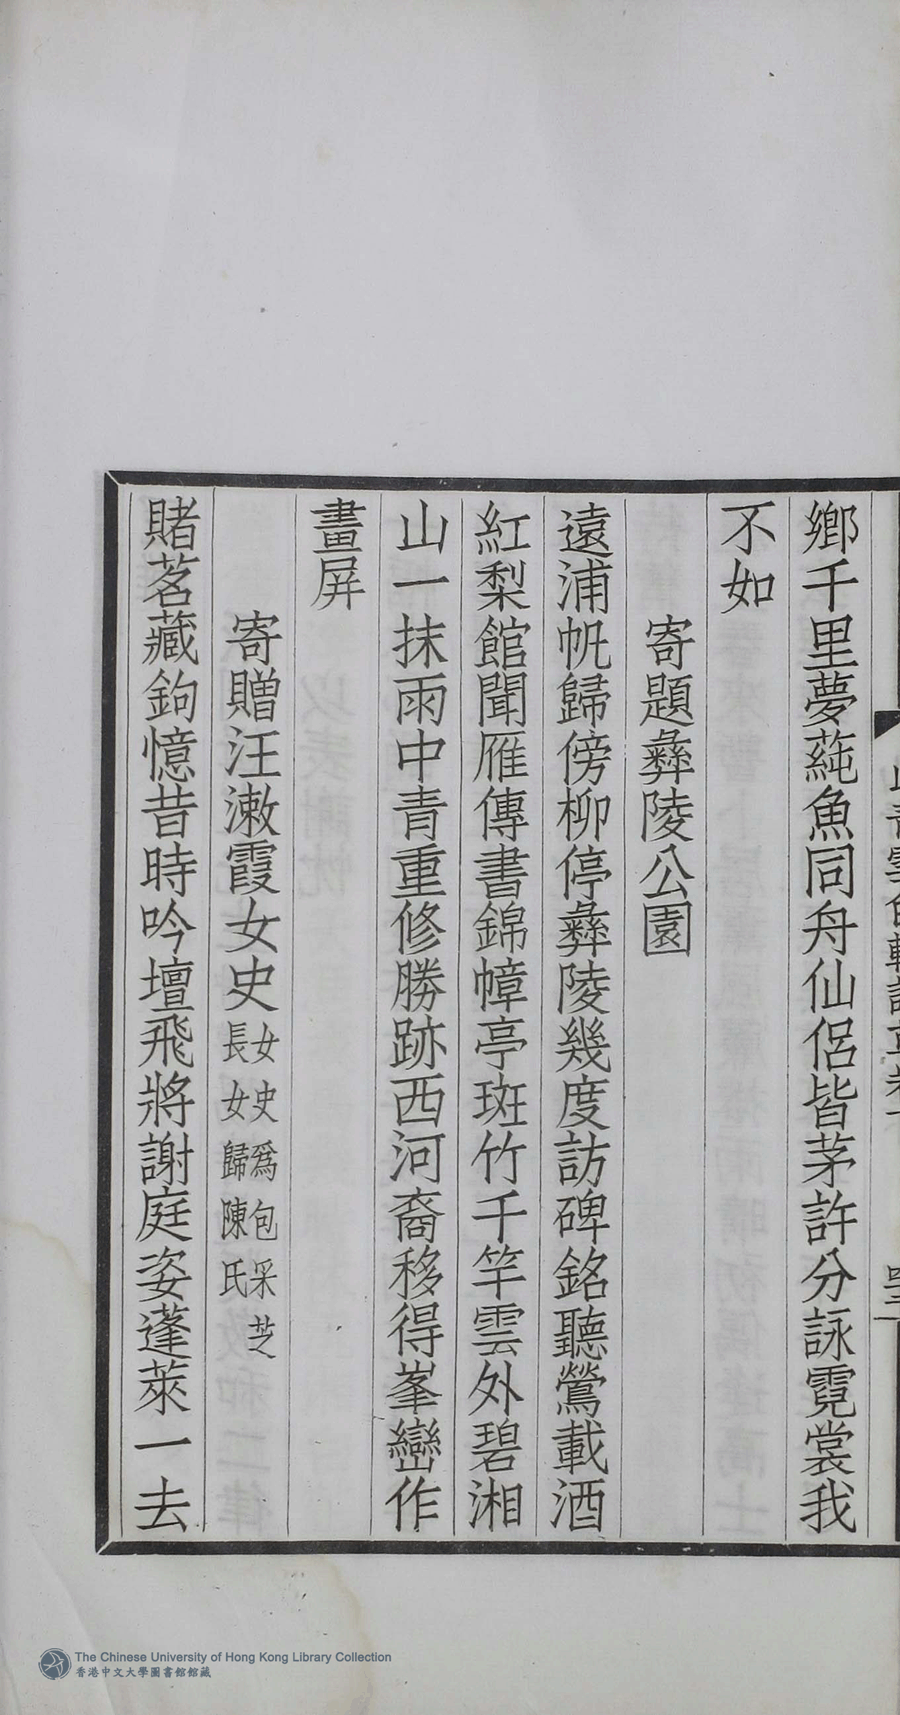 鄉千里夢蒓魚同舟仙侶皆茅許分詠霓裳我
不如
寄題彝陵公園
遠浦帆歸傍柳停彝陵幾度訪碑銘聽鶯載酒
紅梨館聞雁傳書錦幛亭斑竹千竿雲外碧湘
山一抹雨中青重修勝跡西河裔移得峯巒作
畫屏
寄贈汪漱霞女史
女史爲包采芝
長女歸陳氏
賭茗藏鉤憶昔時吟壇飛將謝庭姿蓬萊一去
The Chinese University of Hong Kong Library Collection
香港中文大學圖書館館藏